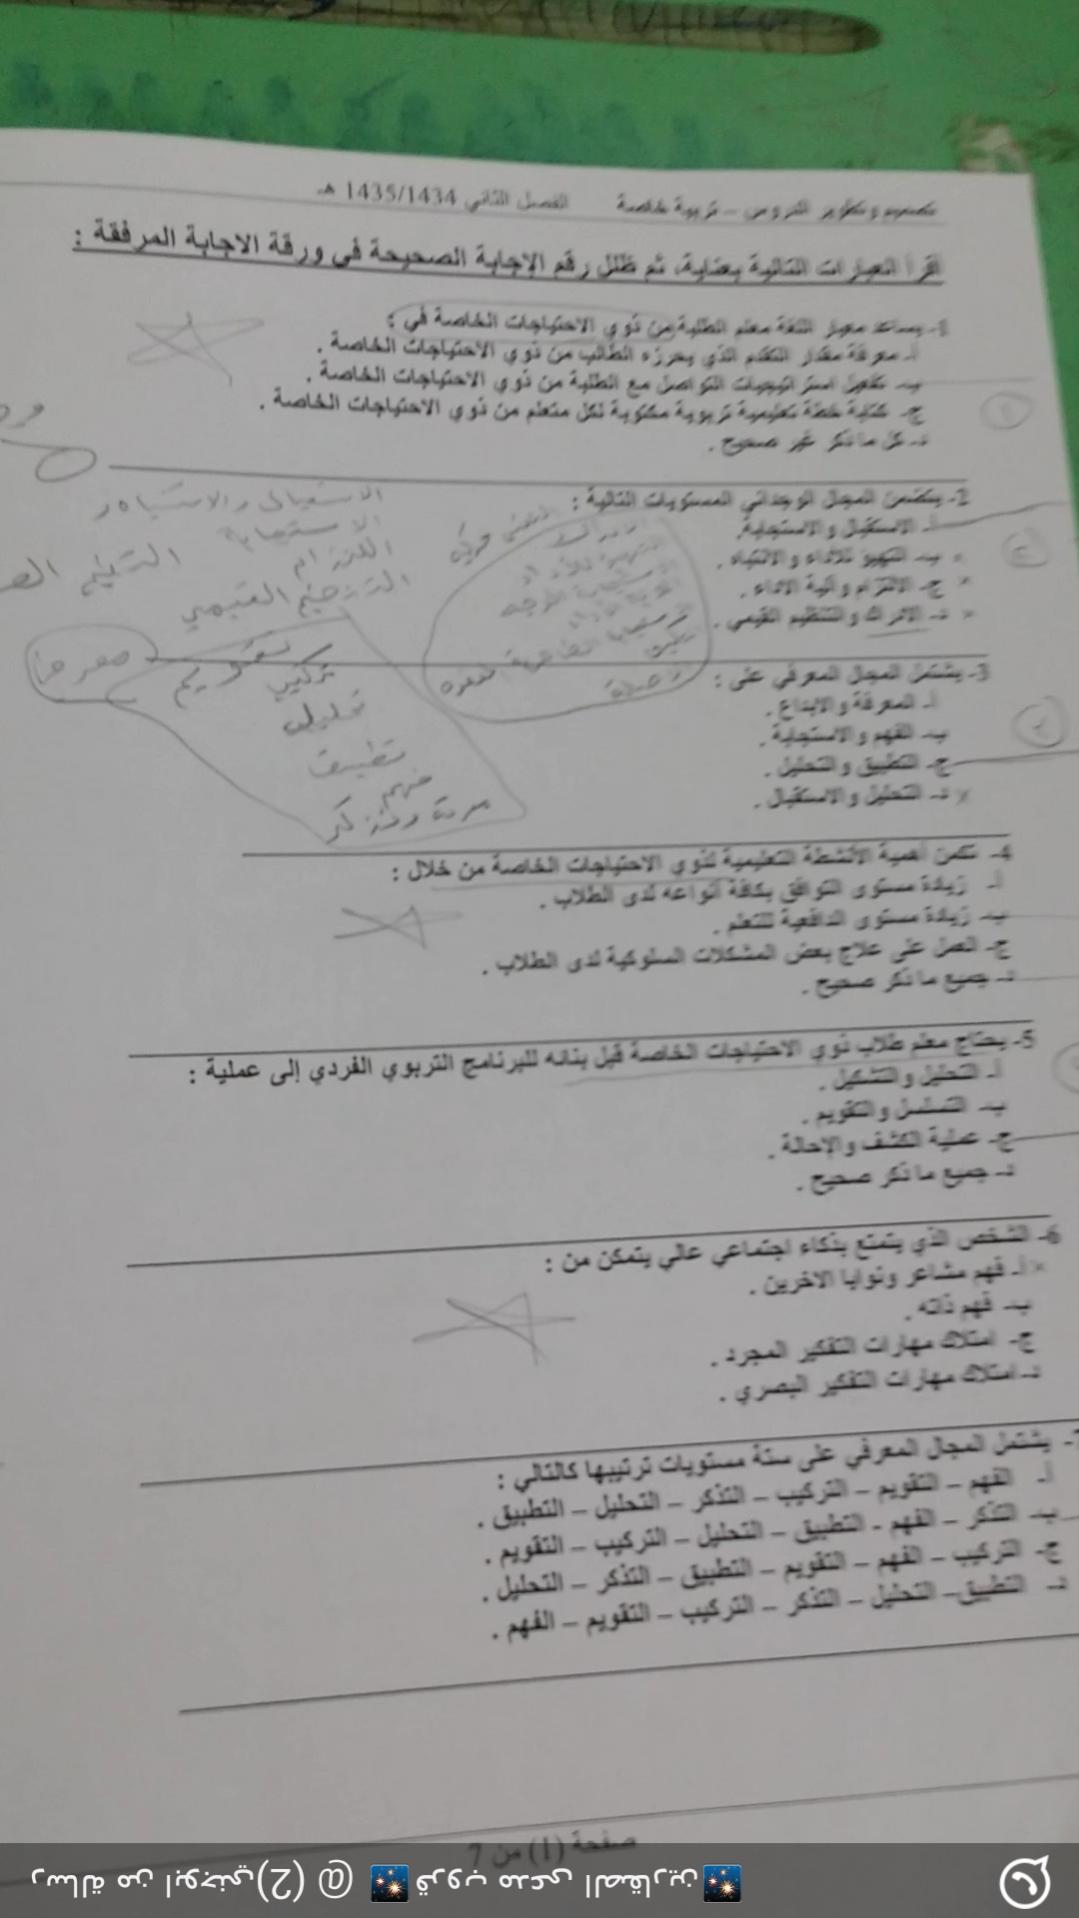 تصميم وتطوير الدروس – تربية خاصة الفصل الثاني 1435/1434 هـ
اقرأ العبارات التالية بعناية، ثم ظلل رقم الإجابة الصحيحة في ورقة الاجابة المرفقة :
1- يساعد معيار اللغة معلم الطلبة من ذوي الاحتياجات الخاصة في :
أ- معرفة مقدار التقدم الذي يحرزه الطالب من ذوي الاحتياجات الخاصة .
ب- تفعيل استراتيجيات التواصل مع الطلبة من ذوي الاحتياجات الخاصة .
ج- كتابة خطة تعليمية تربوية مكتوبة لكل متعلم من ذوي الاحتياجات الخاصة .
د- كل ما ذكر غير صحيح .
2- يتضمن المجال الوجداني المستويات التالية :
أ- الاستقبال والاستجابة.
ب- التهيؤ للأداء والانتباه .
ج- الالتزام وآلية الاداء .
د- الادراك والتنظيم القيمي .
الاستجابة
التنظيم
التنظيم القيمي
تقويم
تركيب
تحليل
تطبيق
فهم
3- يشتمل المجال المعرفي على :
أ- المعرفة والابداع .
ب- الفهم والاستجابة .
ج- التطبيق والتحليل .
د- التحليل والاستقبال .
4- تكمن أهمية الأنشطة التعليمية لذوي الاحتياجات الخاصة من خلال :
أ- زيادة مستوى التوافق بكافة أنواعه لدى الطلاب .
ب- زيادة مستوى الدافعية للتعلم .
ج- العمل على علاج بعض المشكلات السلوكية لدى الطلاب .
د- جميع ما ذكر صحيح .
5- يحتاج معلم طلاب ذوي الاحتياجات الخاصة قبل بنائه للبرنامج التربوي الفردي إلى عملية :
أ- التحليل والتشكيل .
ب- التسلسل والتقويم .
ج- عملية الكشف والإحالة .
د- جميع ما ذكر صحيح .
6- الشخص الذي يتمتع بذكاء اجتماعي عالي يتمكن من :
أ- فهم مشاعر ونوايا الاخرين .
ب- فهم ذاته .
ج- امتلاك مهارات التفكير المجرد .
د- امتلاك مهارات التفكير البصري .
7- يشتمل المجال المعرفي على ستة مستويات ترتيبها كالتالي :
أ- الفهم – التقويم – التركيب – التذكر – التحليل – التطبيق .
ب- التذكر – الفهم - التطبيق – التحليل – التركيب – التقويم .
ج- التركيب – الفهم – التقويم – التطبيق – التذكر – التحليل .
د- التطبيق – التحليل – التذكر – التركيب – التقويم – الفهم .
صفحة (1) من 7
رسالة من ابوجني(2) @ قروب مدعى الصقارين